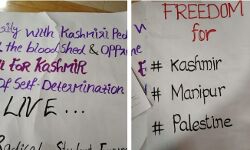 sily with Kashmiri Peo
the bloodshed & Oppre
ll for KASHMIR
Of Self-Determination
LIVE...
Radical Student Forum
FREEDOM
for
# Kashmir
# Manipur
# Palestine